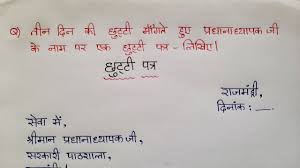 Q) तीन दिन की छुट्टी माँगते हुए प्रधानाध्यापक जी
के नाम पर एक छुट्टी पत्र - लिखिए।
छुट्टी पत्र
राजमंड्री,
दिनांक : __.
सेवा में,
श्रीमान प्रधानाध्यापक जी,
सरकारी पाठशाला,